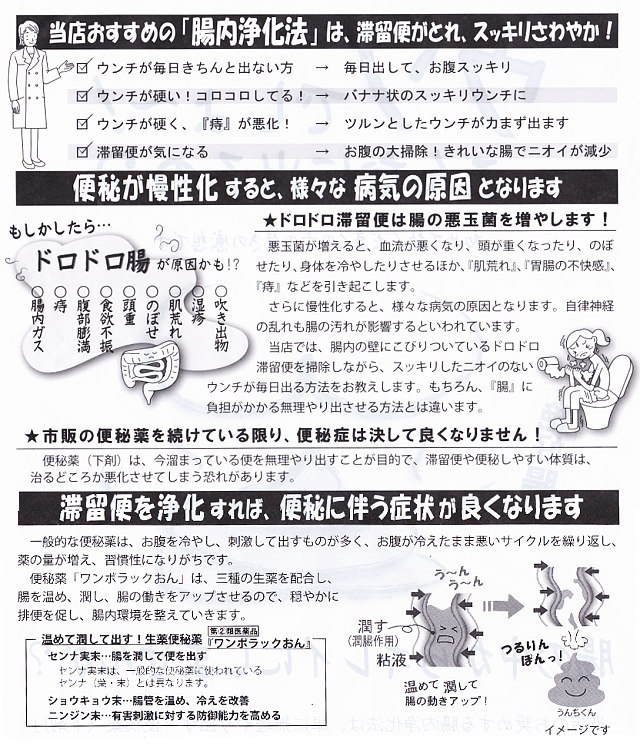 当店おすすめの「腸内浄化法」は、滞留便がとれ、スッキリさわやか！
ウンチが毎日きちんと出ない方 → 毎日出して、お腹スッキリ
ウンチが硬い！コロコロしてる！ → バナナ状のスッキリウンチに
ウンチが硬く、『痔』が悪化！ → ツルンとしたウンチが力まず出ます
滞留便が気になる → お腹の大掃除！きれいな腸でニオイが減少
便秘が慢性化すると、様々な病気の原因となります
もしかしたら…
ドロドロ腸が原因かも!?
○吹き出物
○湿疹
○肌荒れ
○のぼせ
○頭重
○食欲不振
○腹部膨満
○痔
○腸内ガス
★ドロドロ滞留便は腸の悪玉菌を増やします！
悪玉菌が増えると、血流が悪くなり、頭が重くなったり、のぼ
せたり、身体を冷やしたりさせるほか、『肌荒れ』、『胃腸の不快感』、
『痔』などを引き起こします。
さらに慢性化すると、様々な病気の原因となります。自律神経
の乱れも腸の汚れが影響するといわれています。
当店では、腸内の壁にこびりついているドロドロ
滞留便を掃除しながら、スッキリしたニオイのない
ウンチが毎日出る方法をお教えします。もちろん、『腸』に
負担がかかる無理やり出させる方法とは違います。
★市販の便秘薬を続けている限り、便秘症は決して良くなりません！
便秘薬（下剤）は、今溜まっている便を無理やり出すことが目的で、滞留便や便秘しやすい体質は、
治るどころか悪化させてしまう恐れがあります。
滞留便を浄化すれば、便秘に伴う症状が良くなります
一般的な便秘薬は、お腹を冷やし、刺激して出すものが多く、お腹が冷えたまま悪いサイクルを繰り返し、
薬の量が増え、習慣性になりがちです。
便秘薬「ワンポラックおん」は、三種の生薬を配合し、
腸を温め、潤し、腸の働きをアップさせるので、穏やかに
排便を促し、腸内環境を整えていきます。
温めて潤して出す！生薬便秘薬 第②類医薬品『ワンポラックおん』
センナ実末…腸を潤して便を出す
センナ実末は、一般的な便秘薬に使われている
センナ（葉・末）とは異なります。
ショウキョウ末…腸管を温め、冷えを改善
ニンジン末…有害刺激に対する防御能力を高める
う～ん
う～ん
潤す
（潤腸作用）
粘液
温めて 潤して
腸の動きアップ！
つるりん
ぽんっ！
うんちくん
イメージです